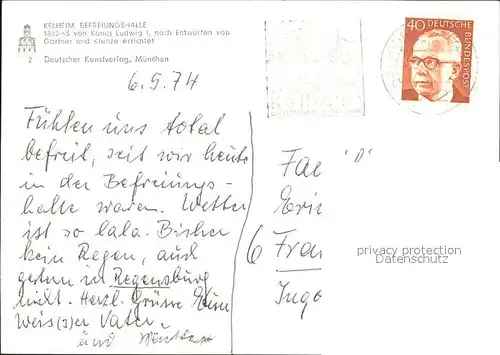 KELHEIM, BEFREIUNGSHALLE
1842-63 von König Ludwig I. nach Entwürfen von
Gärtner und Klenze errichtet
2 Deutscher Kunstverlag, München
6.5.74
40
DEUTSCHE BUNDESPOST
Fühlen uns total
befreit, seit wir heute
in der Befreiungs-
halle waren. Wetter
ist so lala. Bisher
kein Regen, auch
gestern in Regensburg
nicht. Herzl. Grüsse Dein
weis(s)er Vater
und
Fa "D"
Eri
6 Fra
Ingo
privacy protection
Datenschutz